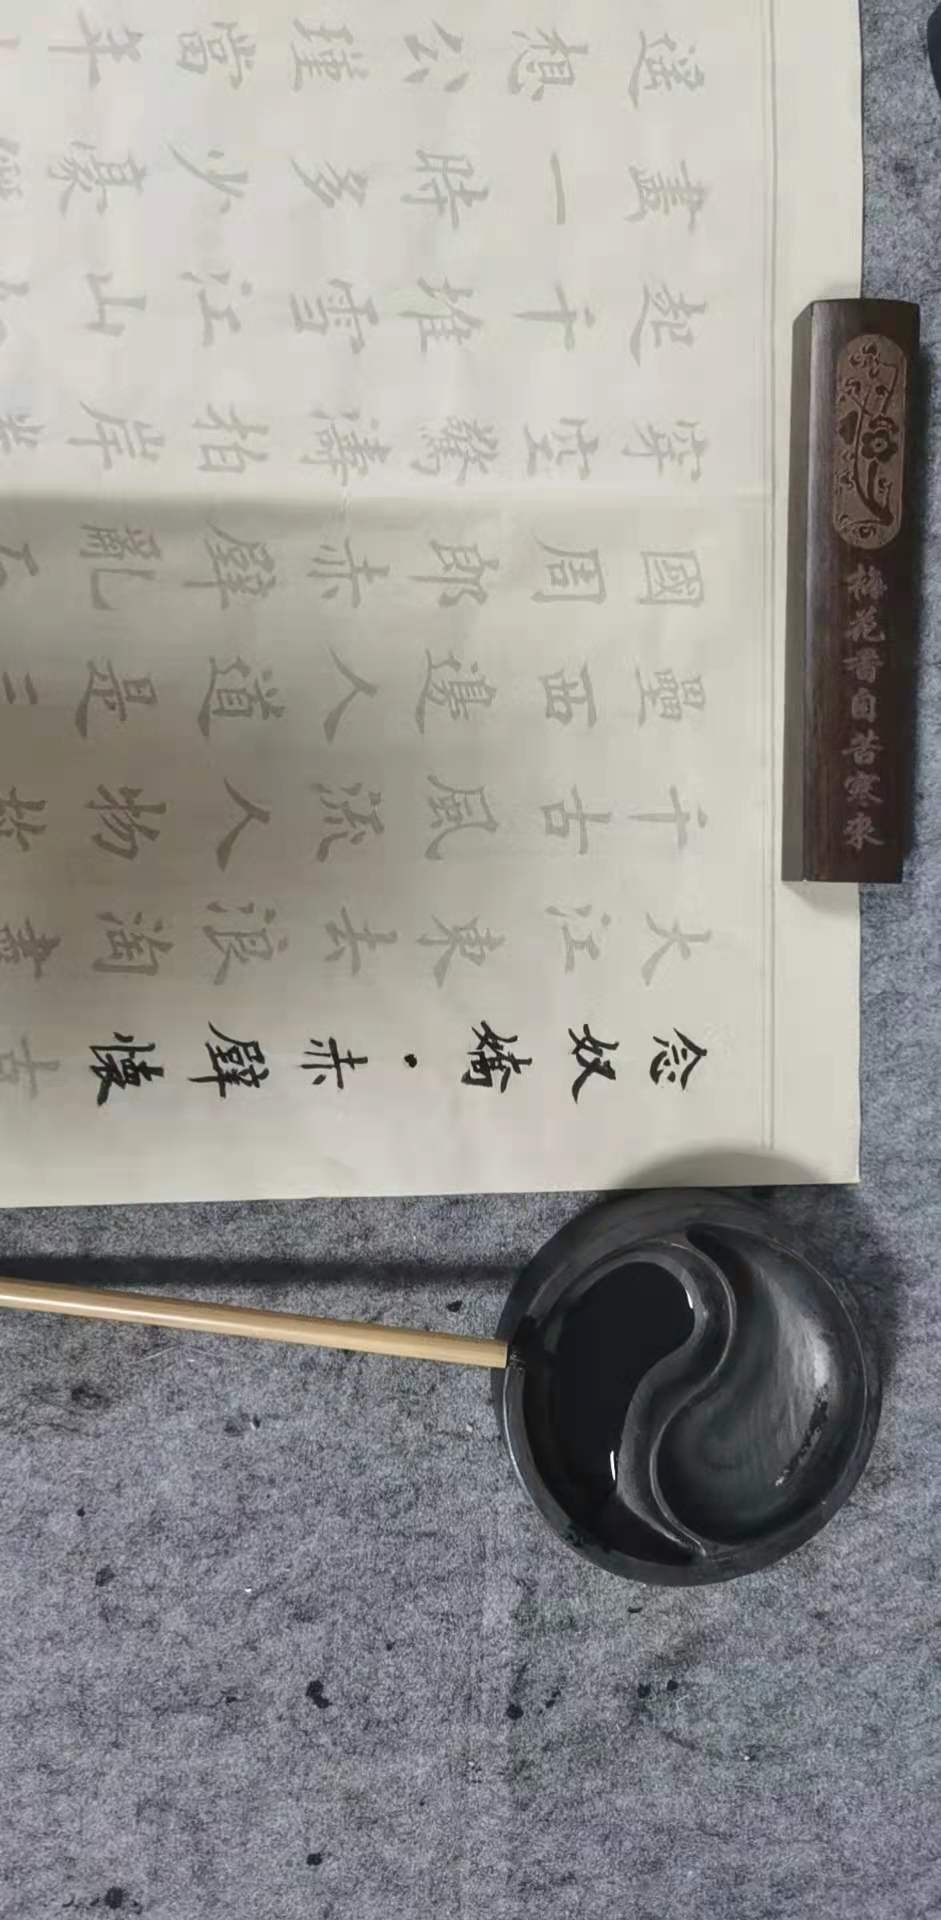 念奴嬌·赤壁懷古
大江東去浪淘盡
千古風流人物故
壘西邊人道是三
國周郎赤壁亂石
穿空驚濤拍岸
起千堆雪江山
畫一時多少豪
遙想公瑾當年
梅花香自苦寒来